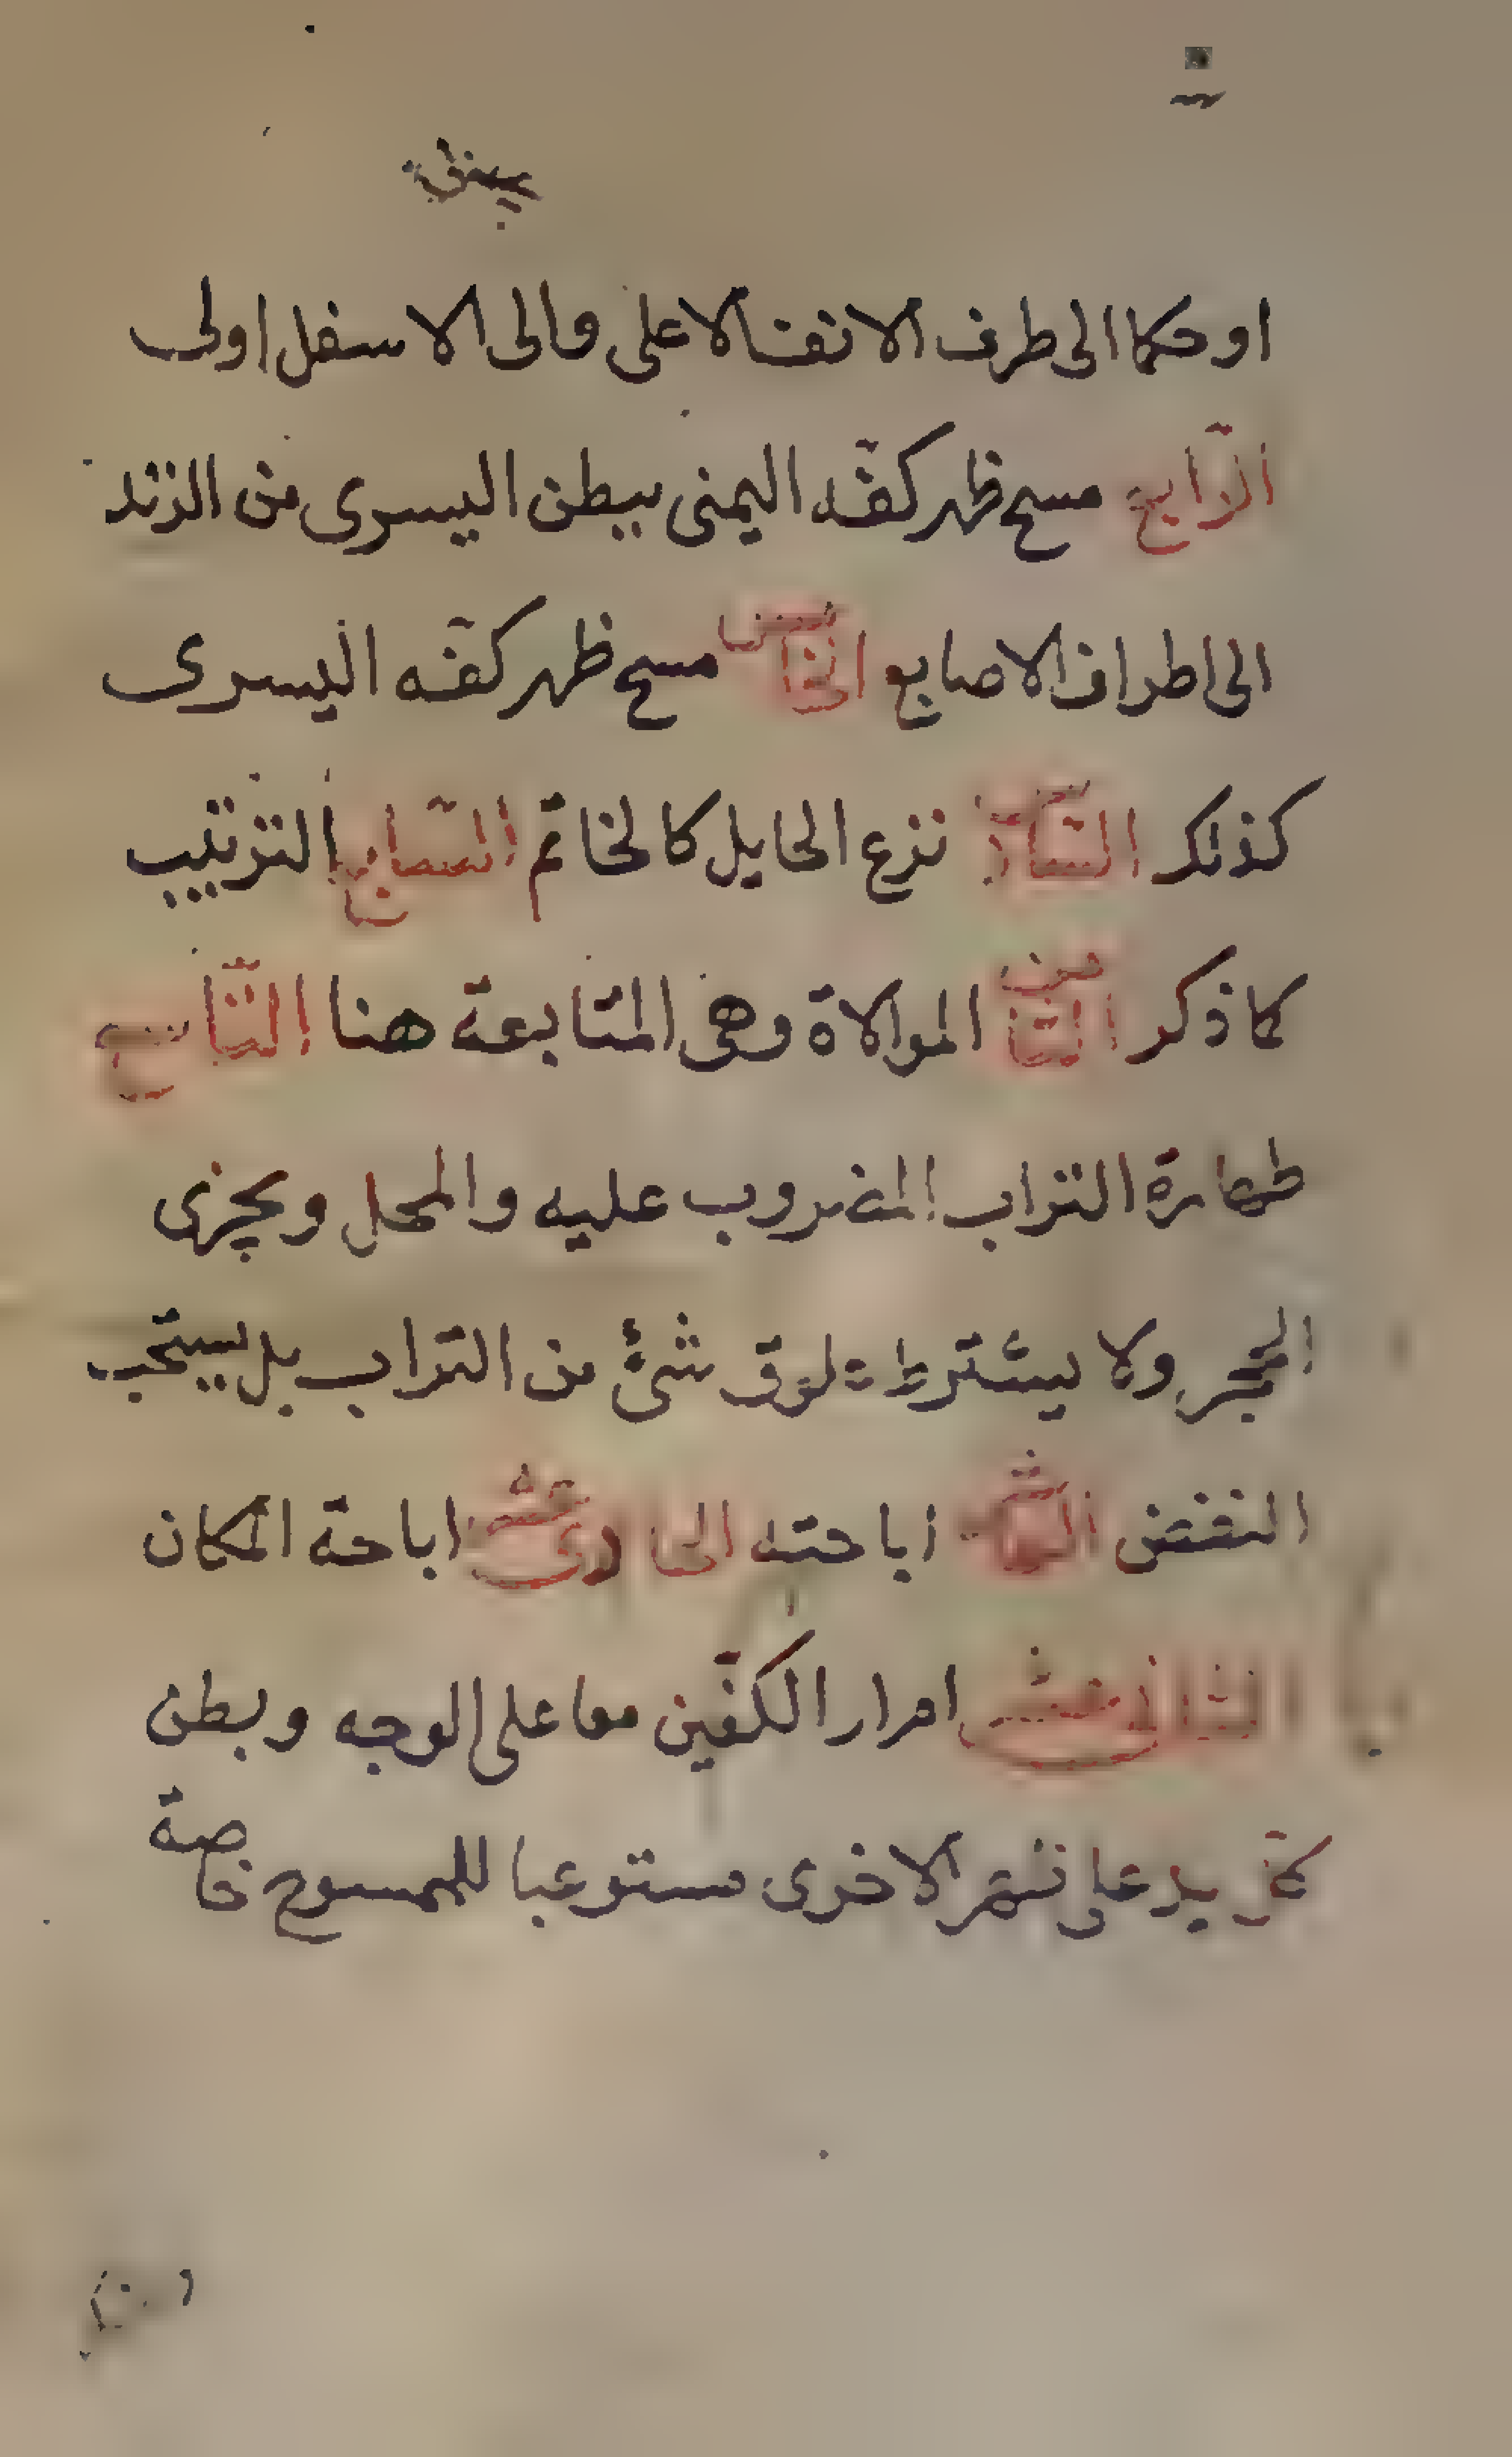 او حكما الى طرف الانف الاعلى والى الاسفل اولى
الرّابع مسح ظهر كفّه اليمنى ببطن اليسرى من الزند
الى اطراف الاصابع الخامس مسح ظهر كفّه اليسرى
كذلك السّادس نزع الحايل كالخاتم السّابع الترتيب
كما ذكر الثّامن الموالاة وهى المتابعة هنا التّاسع
طهارة التراب المضروب عليه والمحل ويجزى
الحجر ولا يشترط علوق شئ من التراب بل يستحب
النفض اباحته الحادى عشر اباحة المكان
الثّانى عشر امرار الكفّين معا على الوجه وبطن
كلّ يد على ظهر الاخرى مستوعبا للممسوح خاصة